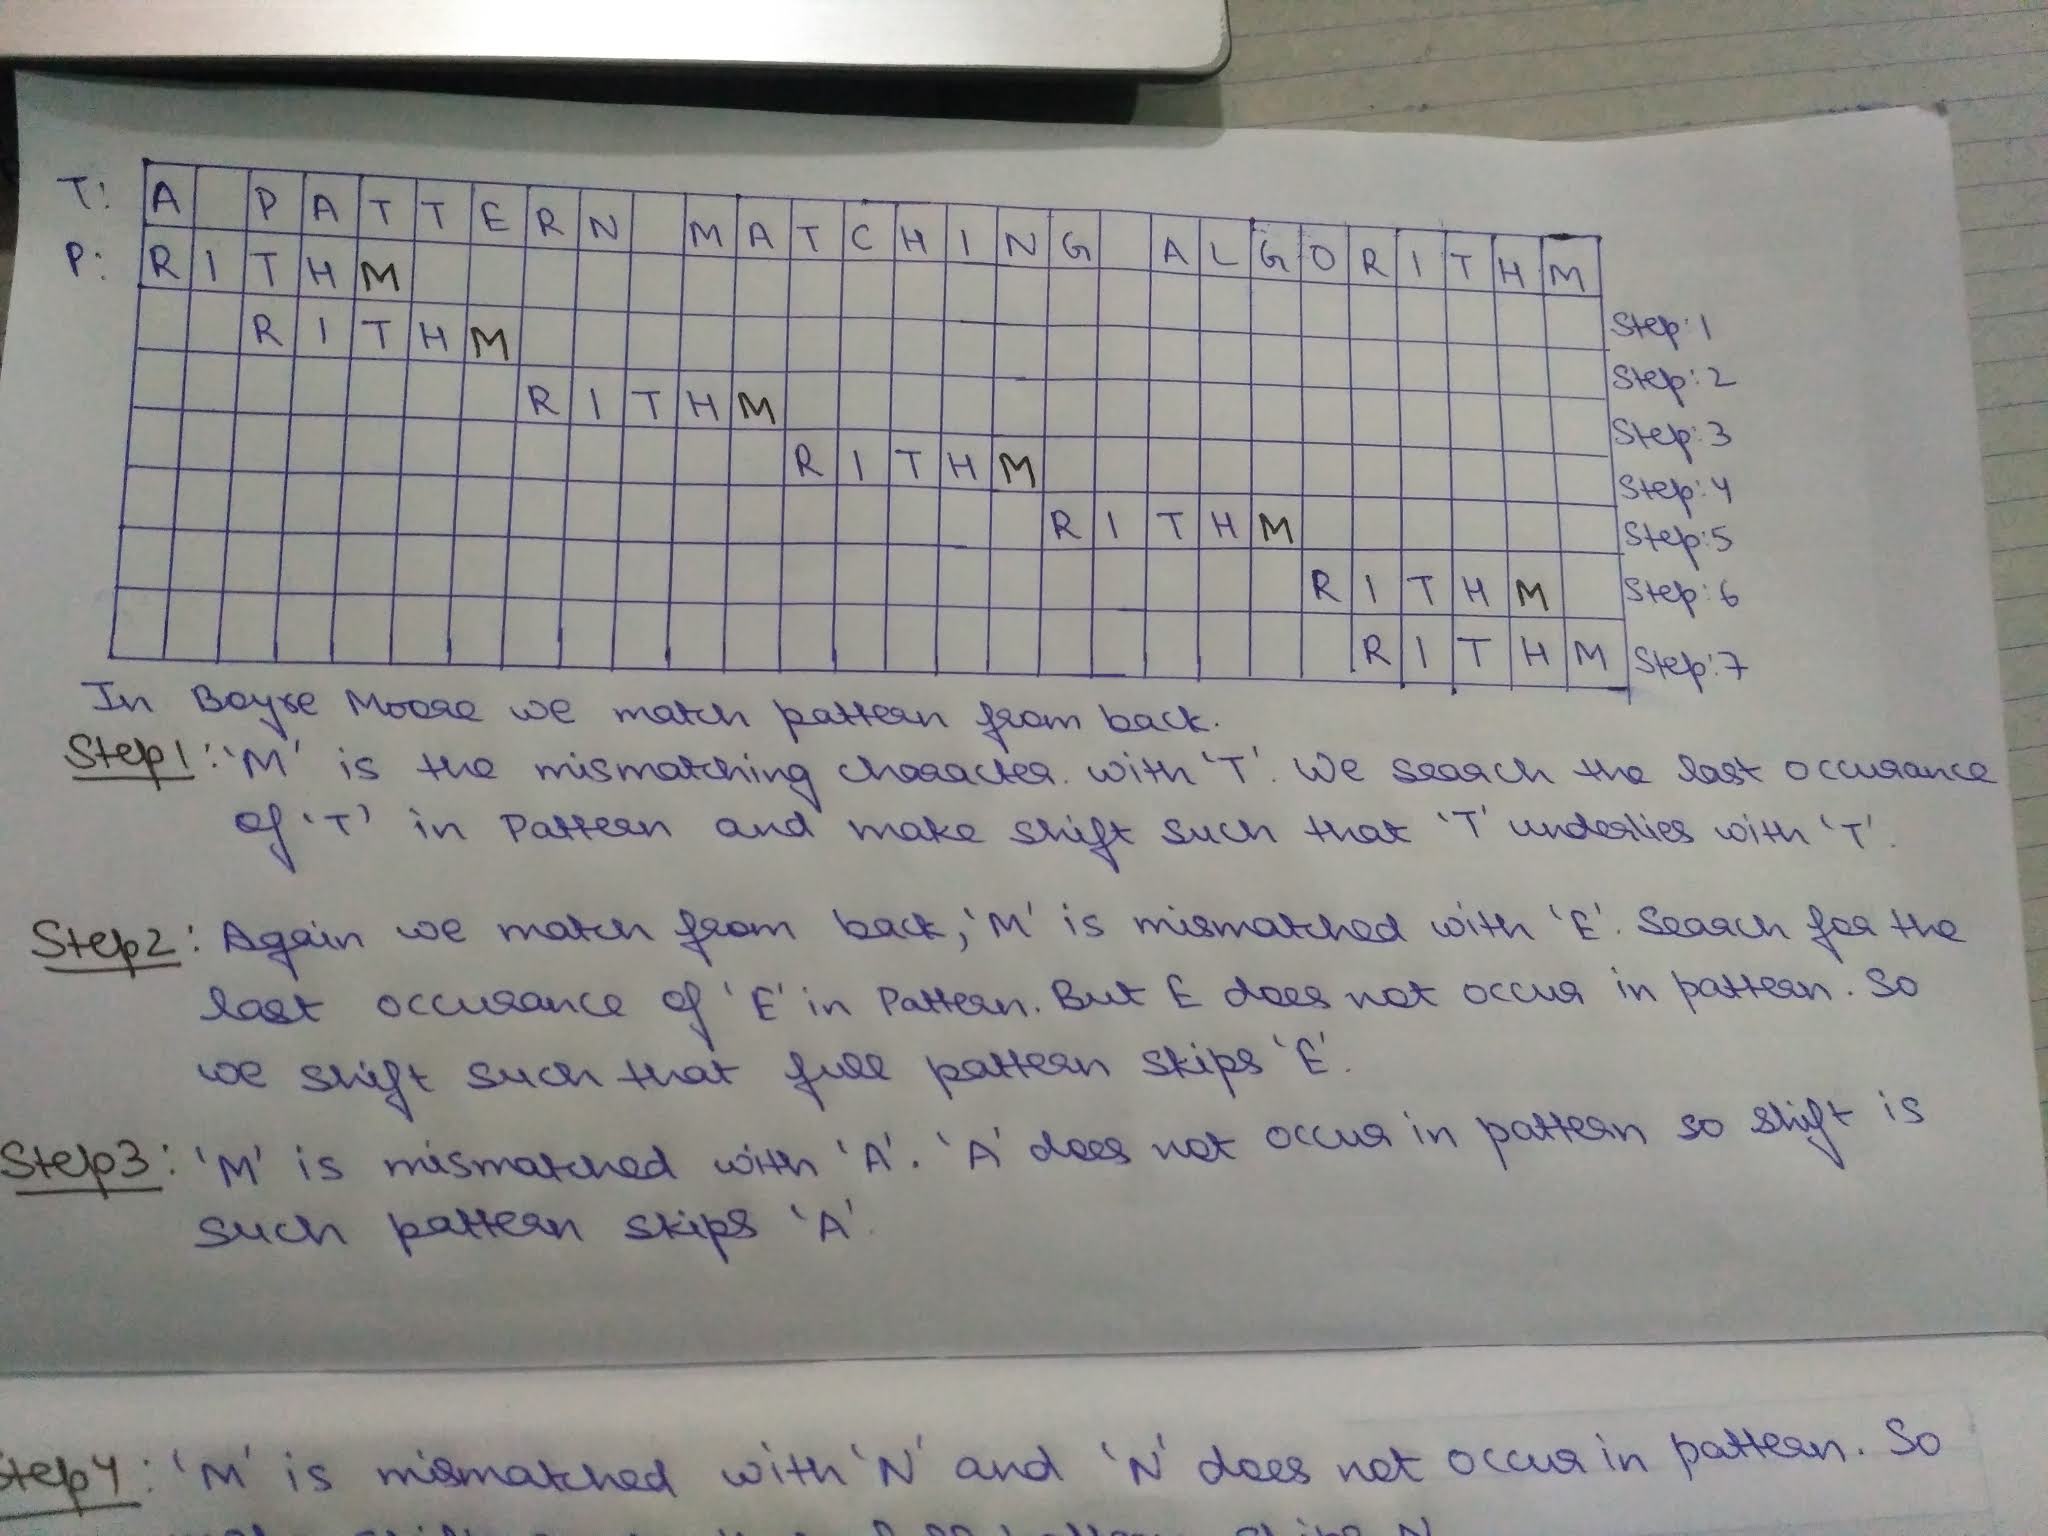 T: A PATTERN MATCHING ALGORITHM
P: RITHM Step:1
RITHM Step:2
RITHM Step:3
RITHM Step:4
RITHM Step:5
RITHM Step:6
RITHM Step:7
In Boyre Moore we match pattern from back.
Step1: 'M' is the mismatching character. with 'T'. We search the last occurance
of 'T' in Pattern and make shift such that 'T' underlies with 'T'.
Step2: Again we match from back, 'M' is mismatched with 'E'. Search for the
last occurance of 'E' in Pattern. But E does not occur in pattern. So
we shift such that full pattern skips 'E'.
Step3: 'M' is mismatched with 'A'. 'A' does not occur in pattern so shift is
such pattern skips 'A'.
Step4: 'M' is mismatched with 'N' and 'N' does not occur in pattern. So